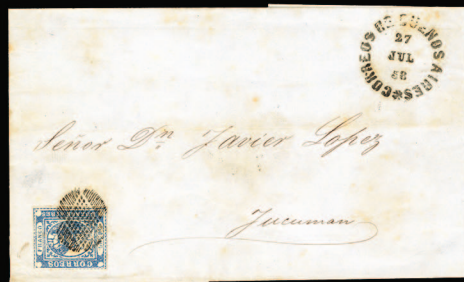 CORREOS DE BUENOS AIRES
27
JUL
58
Señor Dn Javier Lopez
Tucuman
CORREOS
FRANCO